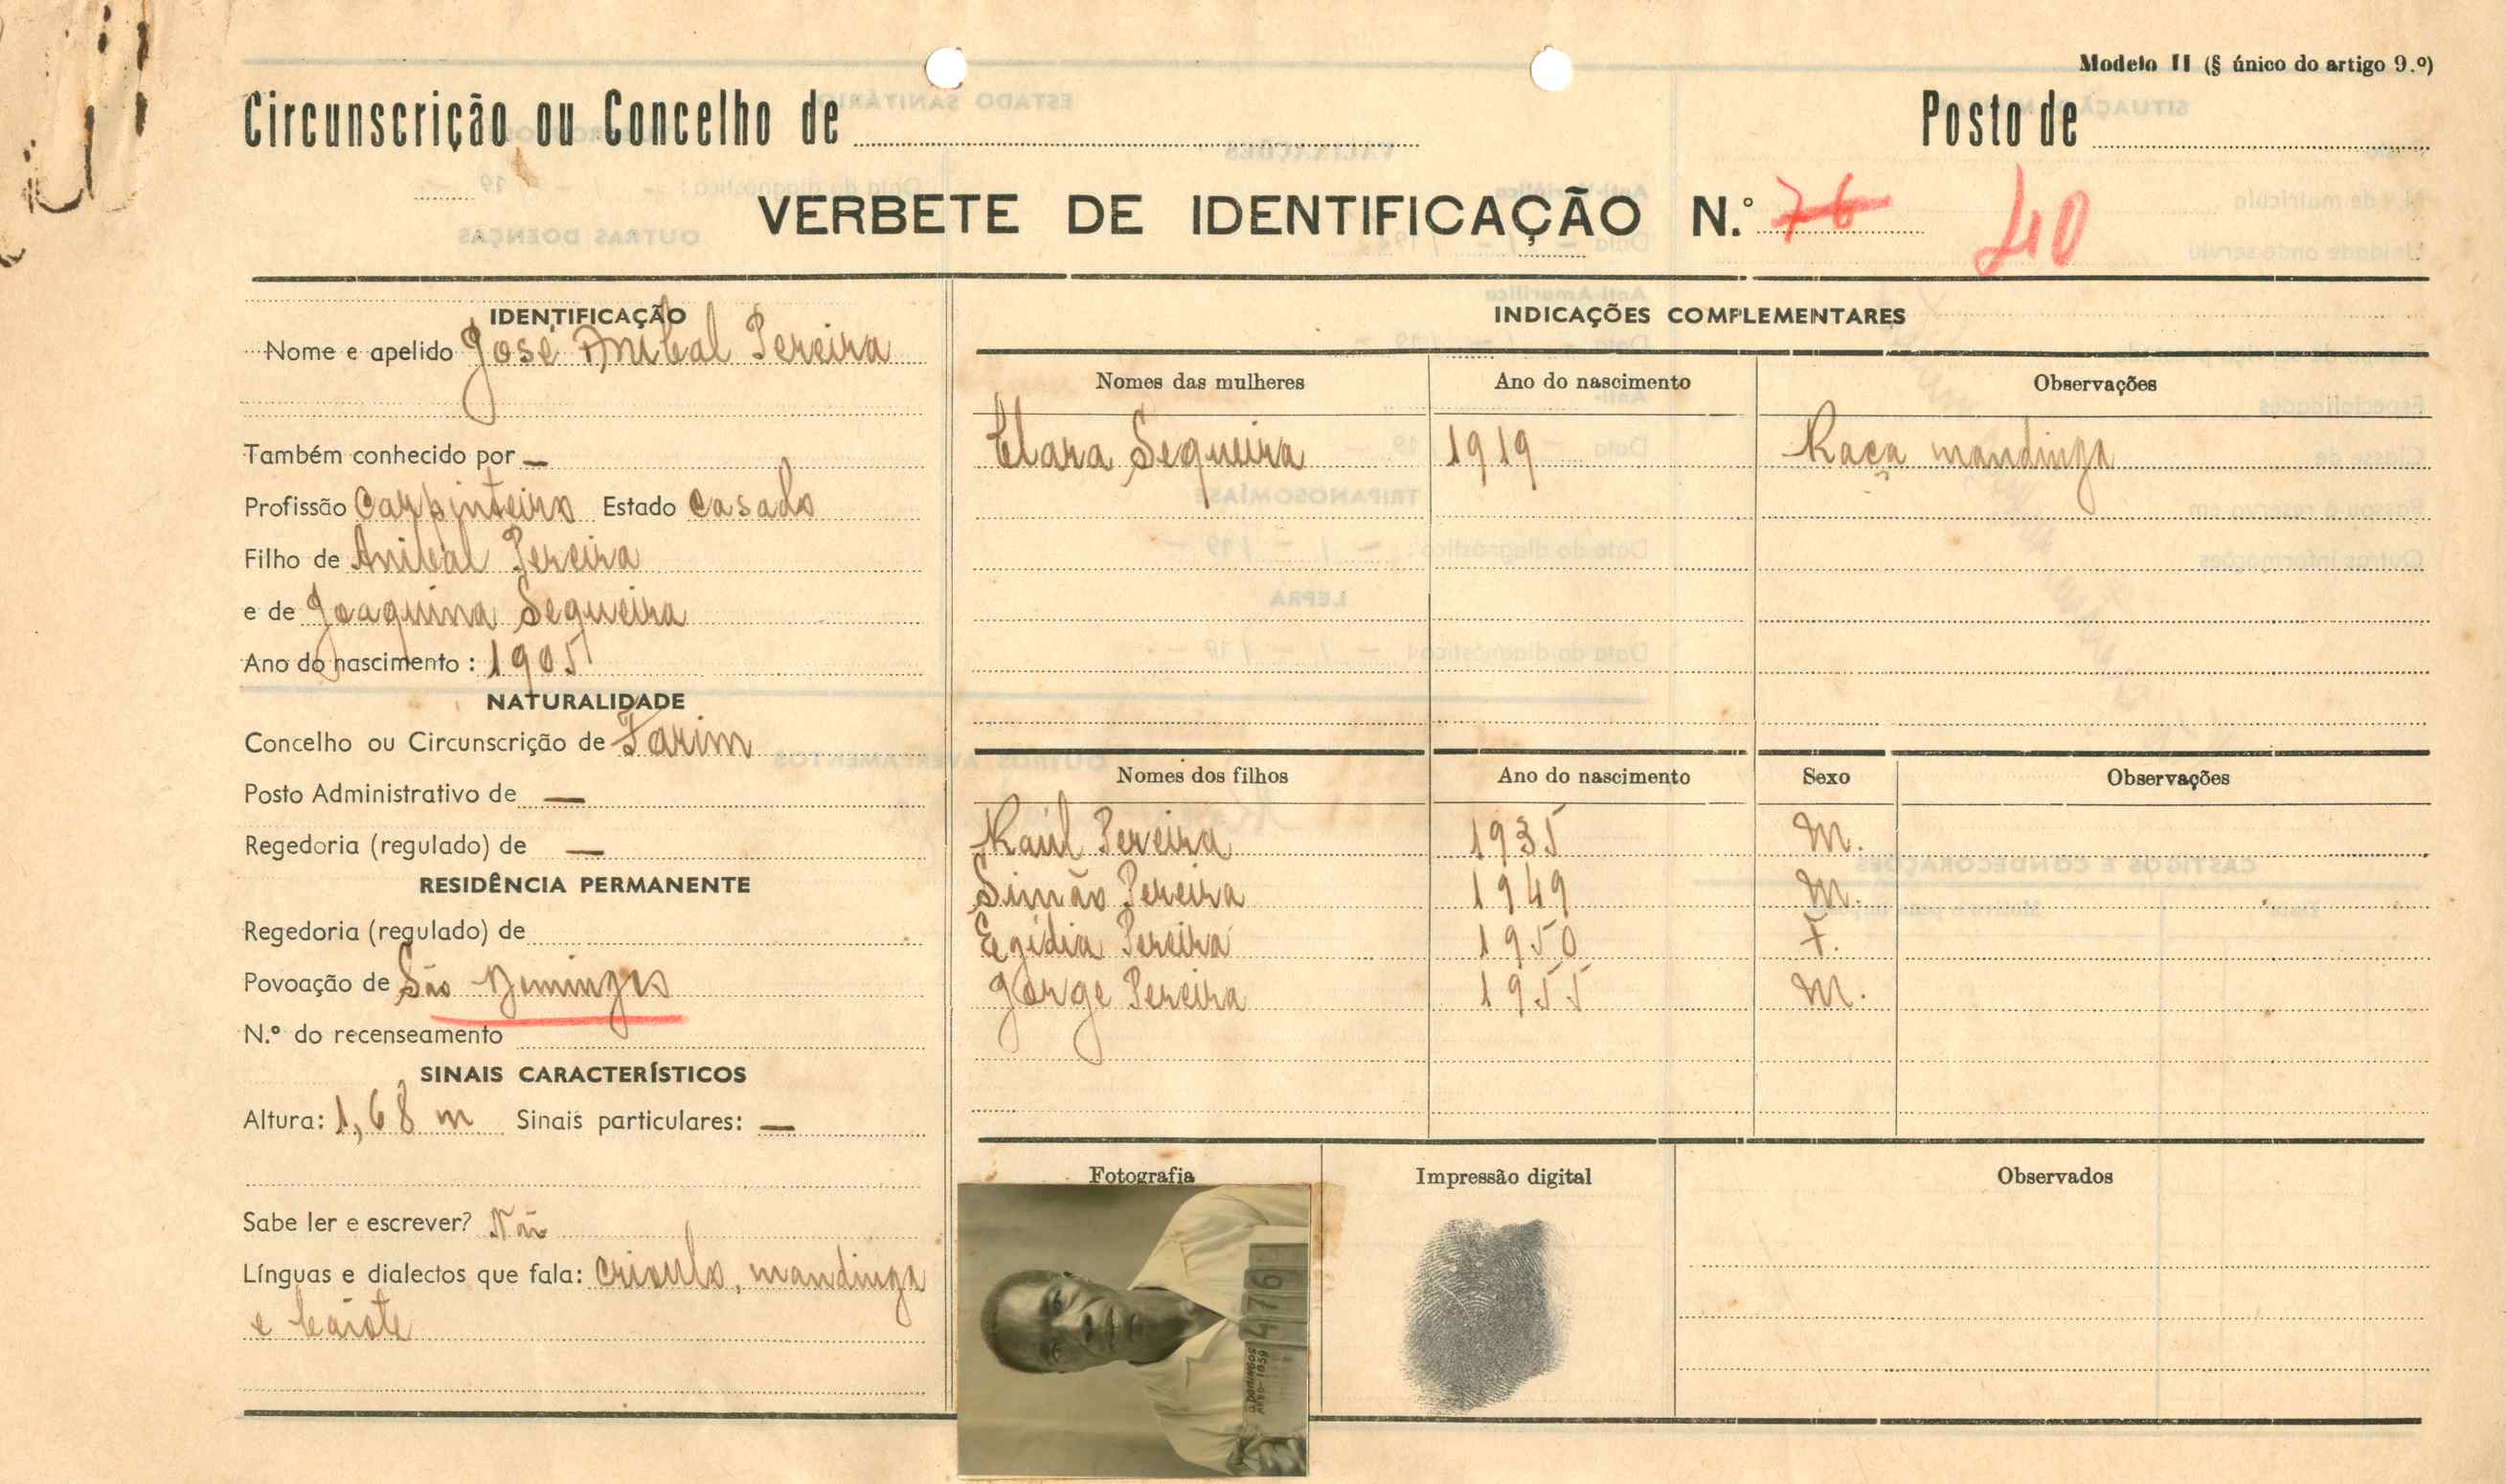 Modelo II (§ único do artigo 9.º)
Circunscrição ou Concelho de Posto de
VERBETE DE IDENTIFICAÇÃO N.º 76 40
IDENTIFICAÇÃO
Nome e apelido José Anibal Pereira
Também conhecido por —
Profissão Carpinteiro Estado casado
Filho de Anibal Pereira
e de Joaquina Sequeira
Ano do nascimento: 1905
NATURALIDADE
Concelho ou Circunscrição de Farim
Posto Administrativo de —
Regedoria (regulado) de —
RESIDÊNCIA PERMANENTE
Regedoria (regulado) de
Povoação de São Domingos
N.º do recenseamento
SINAIS CARACTERÍSTICOS
Altura: 1,68 m Sinais particulares: —
Sabe ler e escrever? Não
Línguas e dialectos que fala: crioulo, mandinga
e
INDICAÇÕES COMPLEMENTARES
Nomes das mulheres Ano do nascimento Observações
Clara Sequeira 1919 Raça mandinga
Nomes dos filhos Ano do nascimento Sexo Observações
Raúl Pereira 1935 M.
Simão Pereira 1949 M.
Egídia Pereira 1950 F.
Jorge Pereira 1955 M.
Fotografia Impressão digital Observados
476
S. DOMINGOS
ANO-1959